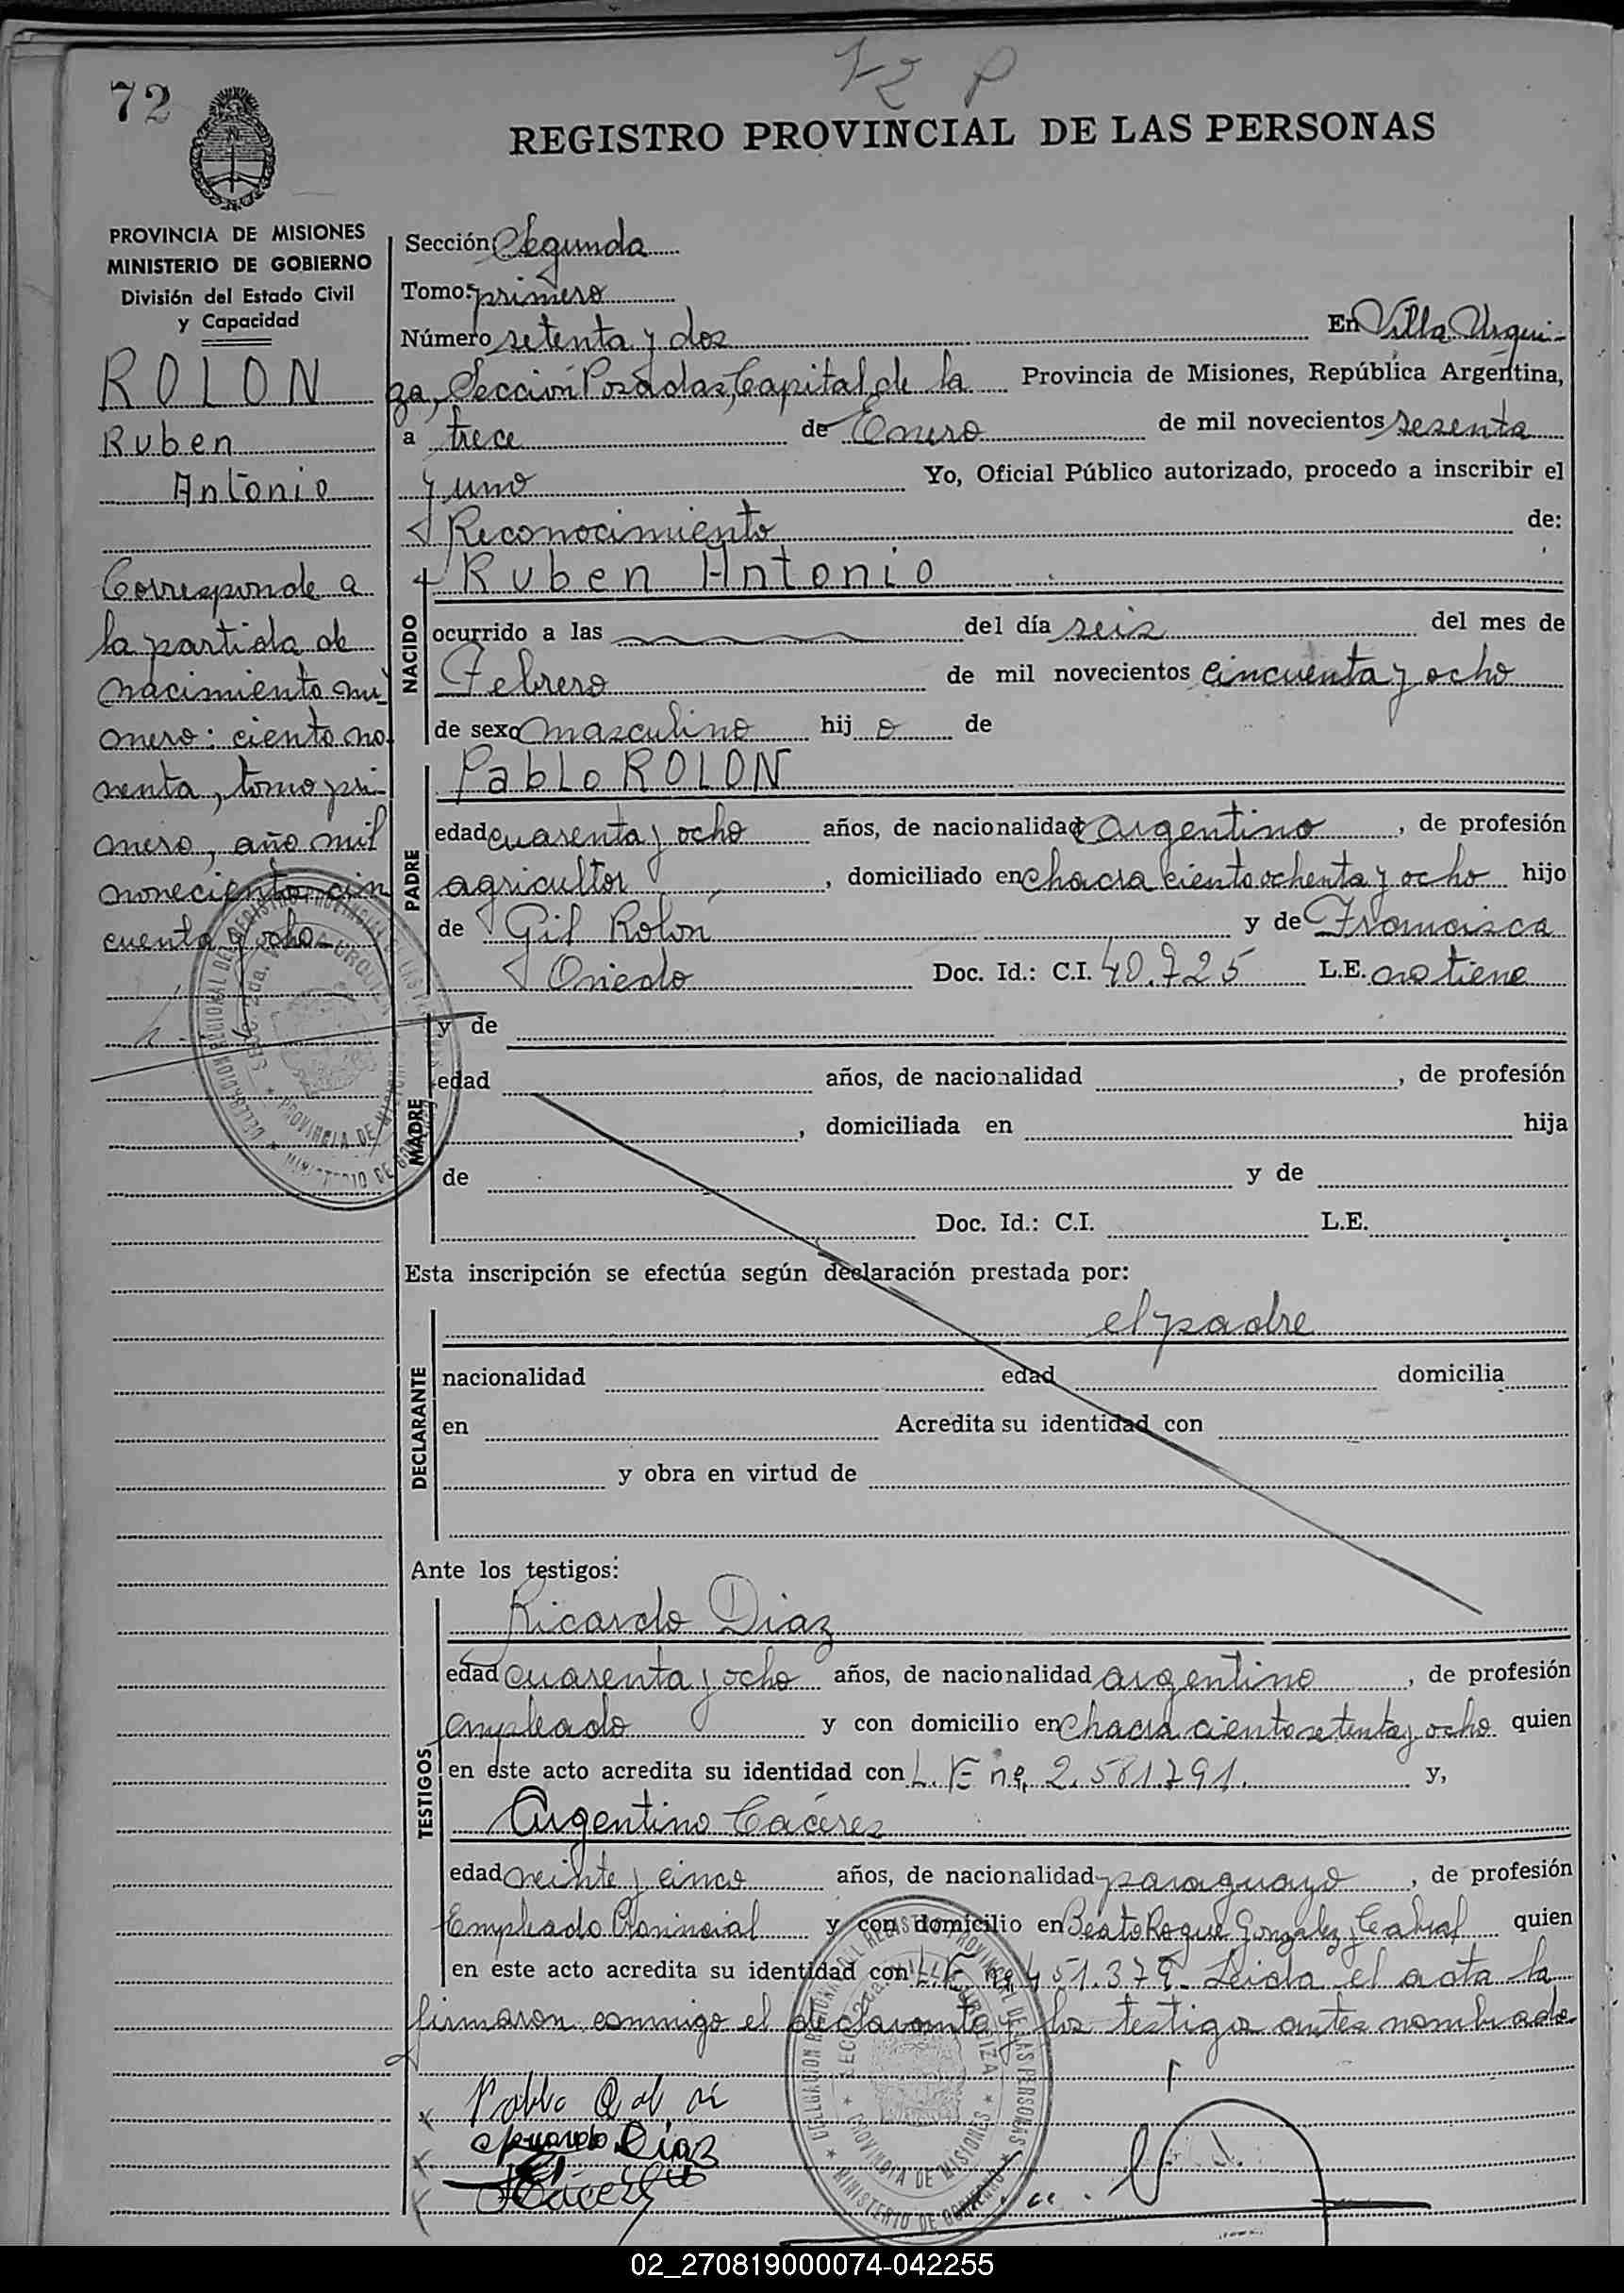 72
72 P
REGISTRO PROVINCIAL DE LAS PERSONAS
PROVINCIA DE MISIONES
MINISTERIO DE GOBIERNO
División del Estado Civil
y Capacidad
ROLON
Ruben
Antonio
Corresponde a
la partida de
nacimiento nú
mero: ciento no
venta, tomo pri-
mero, año mil
noveciento cin
cuenta y ocho
Sección Segunda
Tomo: primero
Número setenta y dos En Villa Urqui-
za, Sección Posadas, Capital de la Provincia de Misiones, República Argentina,
a trece de Enero de mil novecientos sesenta
y uno Yo, Oficial Público autorizado, procedo a inscribir el
Reconocimiento de:
NACIDO
Ruben Antonio
ocurrido a las del día seis del mes de
Febrero de mil novecientos cincuenta y ocho
de sexo masculino hij o de
PADRE
Pablo ROLON
edad cuarenta y ocho años, de nacionalidad argentino, de profesión
agricultor, domiciliado en chacra ciento ochenta y ocho hijo
de Gil Rolón y de Francisca
Oviedo Doc. Id.: C.I. 40.725 L.E. no tiene
MADRE
y de
edad años, de nacionalidad , de profesión
, domiciliada en hija
de y de
Doc. Id.: C.I. L.E.
Esta inscripción se efectúa según declaración prestada por:
DECLARANTE
el padre
nacionalidad edad domicilia
en Acredita su identidad con
y obra en virtud de
Ante los testigos:
TESTIGOS
Ricardo Diaz
edad cuarenta y ocho años, de nacionalidad argentino, de profesión
empleado y con domicilio en chacra ciento setenta y ocho quien
en este acto acredita su identidad con L.E nº 2.581.791. y,
Argentino Cáceres
edad veinte y cinco años, de nacionalidad paraguayo, de profesión
Empleado Provincial y con domicilio en Beato Roque Gonzalez y Cabral quien
en este acto acredita su identidad con Leida el acta la
firmaron conmigo el declarante y los testigos antes nombrado
Pablo
Diaz
02_270819000074-042255